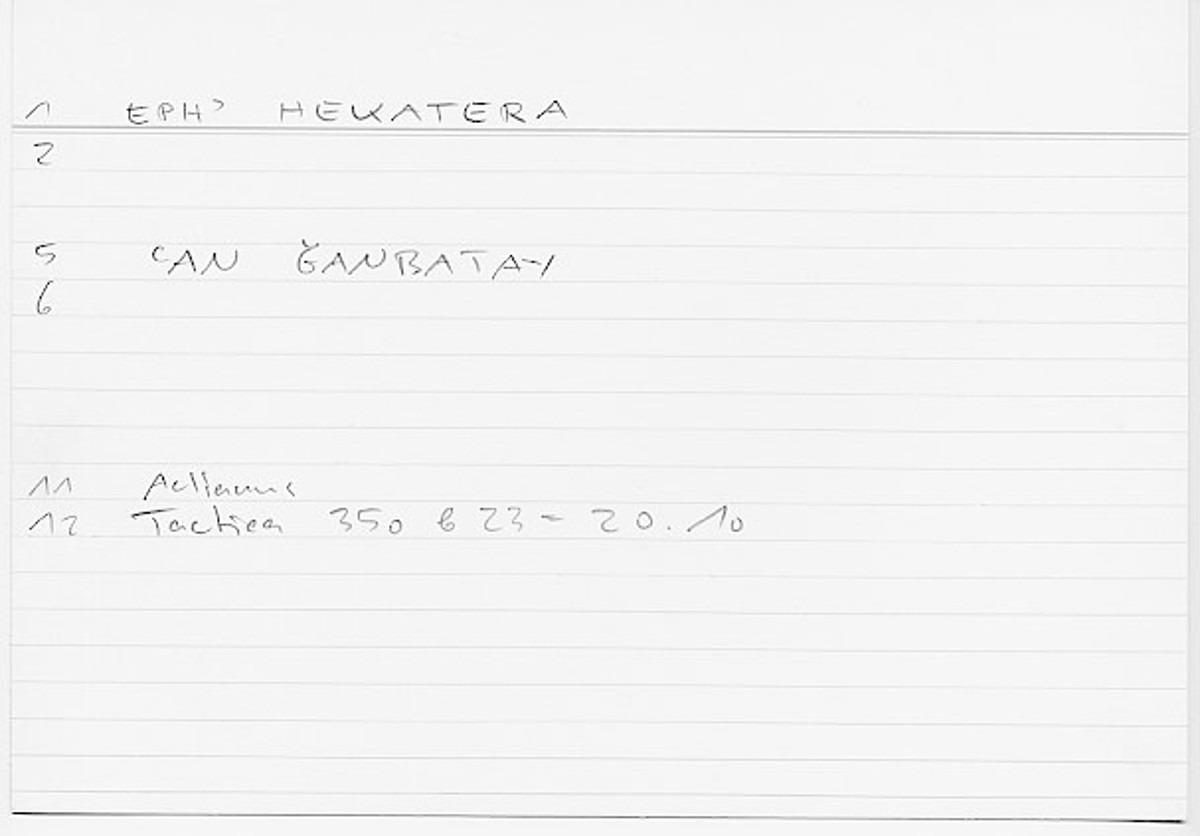 1 EPH’ HEKATERA
2
5 ʿAN ǦANBATAY
6
11 Aelianus
12 Tactica 350 b 23 = 20.10